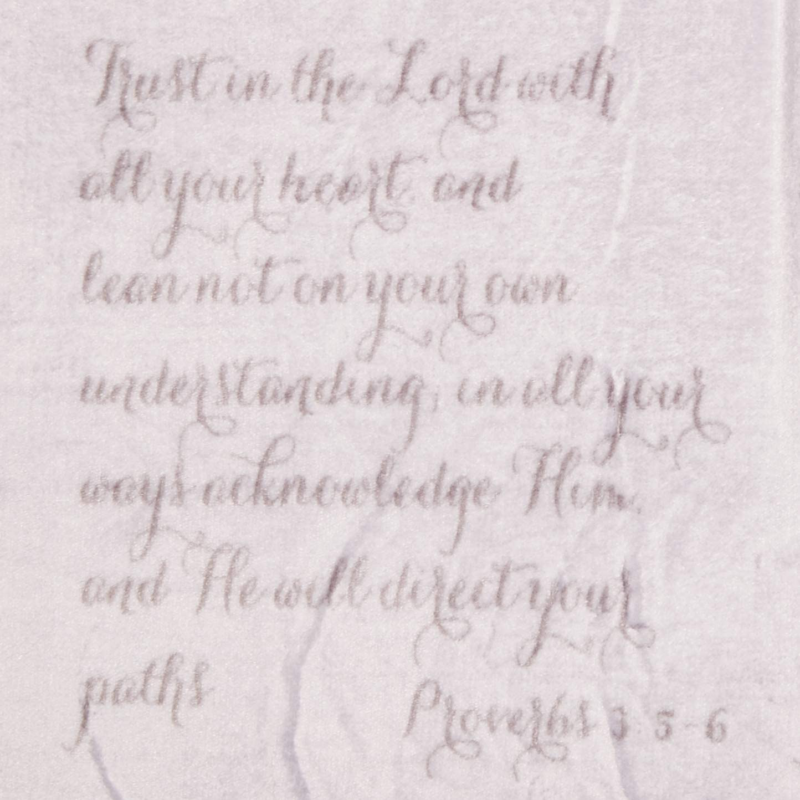 Trust in the Lord with
all your heart, and
lean not on your own
understanding; in all your
ways acknowledge Him,
and He will direct your
paths
Proverbs 3:5-6